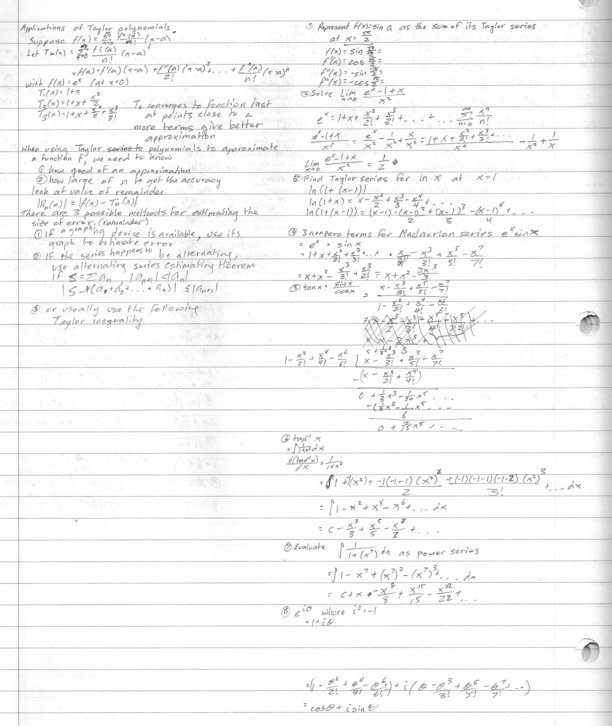 Applications of Taylor polynomials
Suppose f(x) = ∑ fⁿ(a)/n! (x-a)ⁿ
Let Tn(x) = ∑ fⁱ(a)/i! (x-a)ⁱ
= f(a) + f'(a)(x-a) + f''(a)/2! (x-a)² + ... + fⁿ(a)/n! (x-a)ⁿ
with f(x) = eˣ (at x=0)
T₁(x) = 1+x
T₂(x) = 1+x+x²/2
T₃(x) = 1+x+x²/2+x³/3!
Tn converges to function fast
at points close to a
more terms give better
approximation
When using Taylor polynomials to approximate
a function f, we need to know
① how good of an approximation
② how large of n to get the accuracy
look at value of remainder
|Rn(x)| = |f(x) - Tn(x)|
There are 3 possible methods for estimating the
size of error. (remainder)
① If a graphing device is available, use its
graph to estimate error
② If the series happens to be alternating,
use alternating series estimating theorem
if S = ∑an |an+1| < |an|
|S-(a₁+a₂+...+an)| ≤ |an+1|
③ or usually use the following
Taylor inequality
① Represent f(x)=sin a as the sum of its Taylor series
at x = π/2
f(x) = sin π/2 =
f'(x) = cos π/2 =
f''(x) = -sin π/2 =
f'''(x) = -cos π/2 =
② Solve Lim x→0 eˣ-1+x / x²
eˣ = 1+x+x²/2!+x³/3!+...+... ∑ n=0 xⁿ/n!
Lim x→0 eˣ-1+x / x² = 1/2
③ Find Taylor series for ln x at x=1
ln(1+(x-1))
ln(1+x) = x - x²/2 + x³/3 - x⁴/4 ...
ln(1+(x-1)) = (x-1) - (x-1)²/2 + (x-1)³/3 - (x-1)⁴/4 + ...
④ 3 nonzero terms for Maclaurian series eˣ sin x
= eˣ · sin x
⑤ tan x = sin x / cos x = x - x³/3! + x⁵/5! - x⁷/7! / 1 - x²/2! + x⁴/4! - x⁶/6!
1 - x²/2! + x⁴/4! - x⁶/6! | x - x³/3! + x⁵/5! - x⁷/7!
-(x - x³/2! + x⁵/4!)
0 + 1/3 x³ - 1/30 x⁵ ...
-(1/3 x³ - 1/6 x⁵ ...
0 + 2/15 x⁵ ...
⑥ tan⁻¹ x
= ∫ 1/1+x² dx
d(tan⁻¹x)/dx = 1/1+x²
= ∫ 1 + (-1)(x²) + -1(-1-1)(x²)²/2 + (-1)(-1-1)(-1-2)(x²)³/3! + ... dx
= ∫ 1 - x² + x⁴ - x⁶ + ... dx
⑦ Evaluate ∫ 1/1+(x⁷) dx as power series
= ∫ 1 - x⁷ + (x⁷)² - (x⁷)³ + ... dx
= c + x - x⁸/8 + x¹⁵/15 - x²²/22 + ...
⑧ e^iθ where i² = -1
= 1 + iθ
= (1 - θ²/2! + θ⁴/4! - θ⁶/6!) + i(θ - θ³/3! + θ⁵/5! - θ⁷/7! ...)
= cosθ + i sinθ